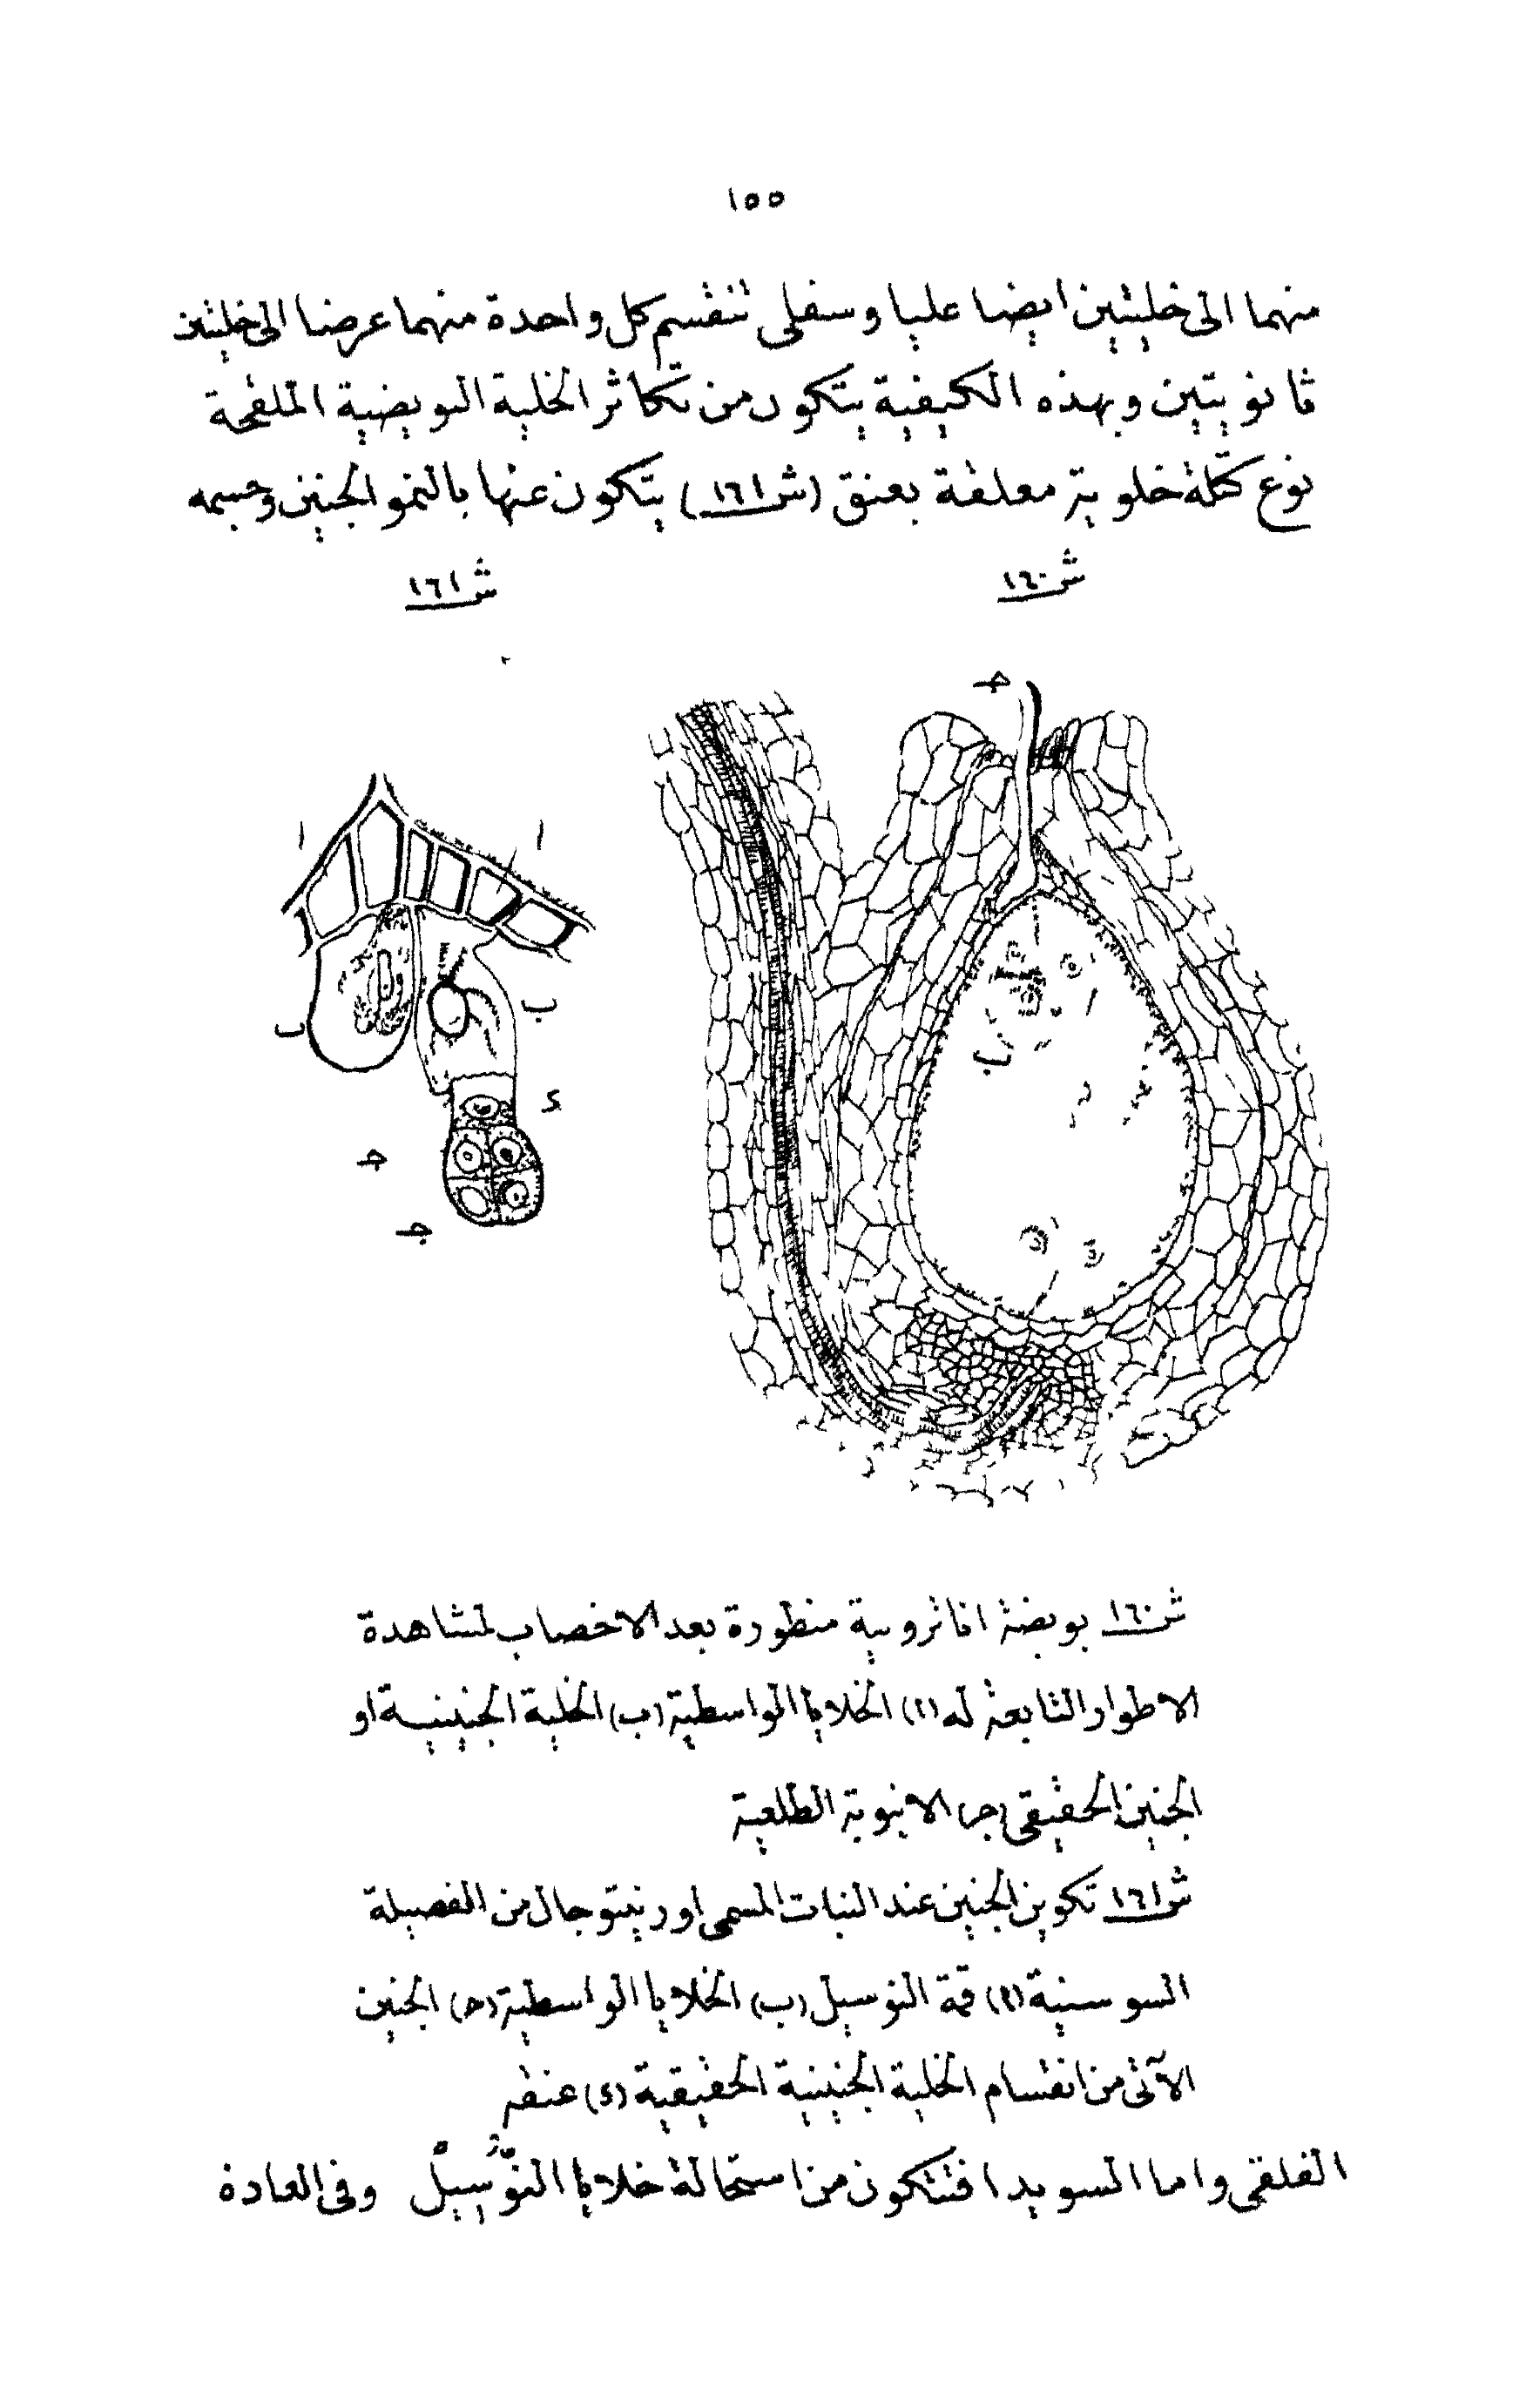 ١٥٥
منهما الى خليتين ايضا عليا وسفلى تنقسم كل واحدة منهما عرضا الى خليتين
ثانويتين وبهذه الكيفية يتكون من تكاثر الخلية البويضية الملقحة
نوع كتلة خلوية معلقة بعنق (ش ١٦١) يتكون عنها بالنمو الجنين وجسمه
ش ١٦٠
ش ١٦١
جـ
ا
ا
ب
ب
ب
د
جـ
جـ
ش ١٦٠ بويضة اناتروبية منظورة بعد الاخصاب لمشاهدة
الاطوار التابعة له (ا) الخلايا الواسطية (ب) الخلية الجنينية او
الجنين الحقيقى (جـ) الانبوبة الطلعية
ش ١٦١ تكوين الجنين عند النبات المسمى اورنيتوجال من الفصيلة
السوسنية (ا) قمة النوسيل (ب) الخلايا الواسطية (حـ) الجنين
الآتى من انقسام الخلية الجنينية الحقيقية (د) عنقه
الفلقى واما السويدا فتتكون من استحالة خلايا النوسيل وفى العادة